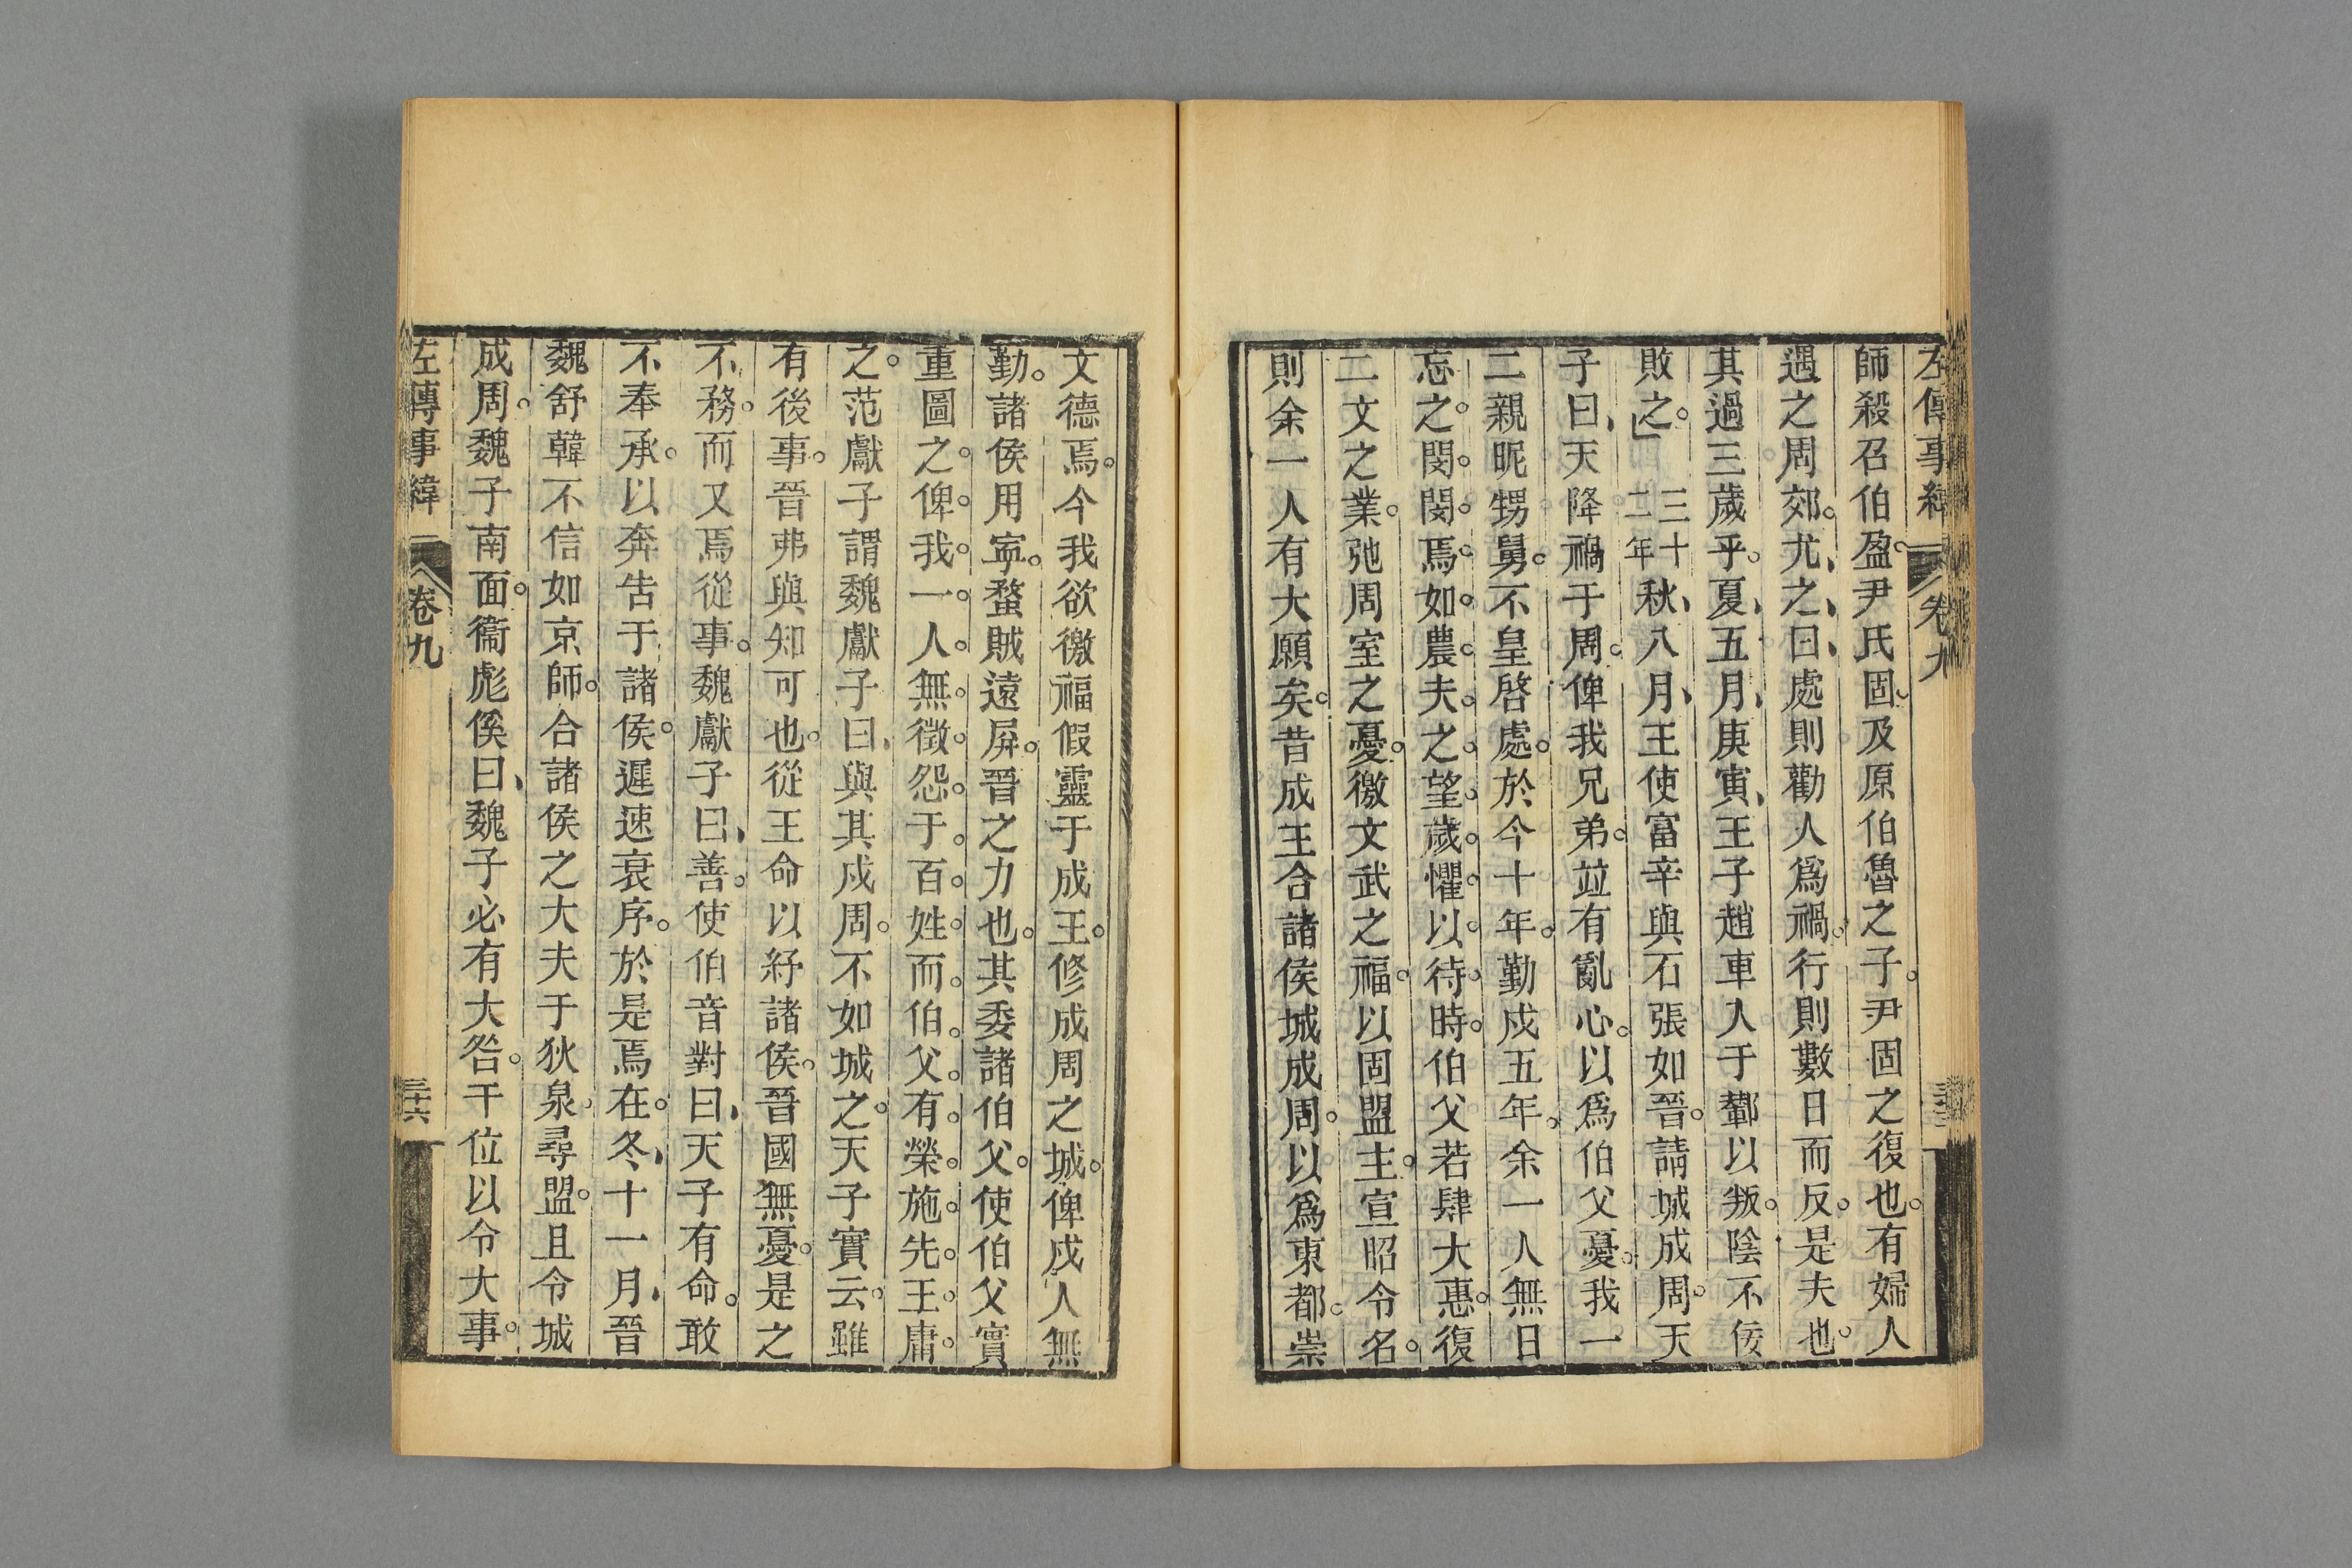 左傳事緯
卷九
師殺召伯盈。尹氏固。及原伯魯之子。尹固之復也。有婦人
遇之周郊。尤之、曰、處則勸人爲禍。行則數日而反。是夫也。
其過三歲乎。夏、五月、庚寅、王子趙車人于鄻以叛。陰不佞
敗之。三十二年秋、八月、王使富辛與石張如晉。請城成周。天
子曰、天降禍于周。俾我兄弟。竝有亂心。以爲伯父憂。我一
二親昵甥舅。不皇啓處。於今十年。勤戍五年。余一人無日
忘之。閔。閔。焉。如。農。夫。之。望。歲。懼。以。待。時。伯父若肆大惠。復
二文之業。弛周室之憂。徼文武之福。以固盟主。宣昭令名。
則余一人有大願矣。昔成王合諸侯城成周。以爲東都。崇
文德焉。今我欲徼福假靈于成王。修成周之城。俾戍人無
勤。諸侯用寧。蝥賊遠屏。晉之力也。其委諸伯父。使伯父實
重圖之。俾。我。一。人。無。徵。怨。于。百。姓。而。伯。父。有。榮。施。先。王。庸。
之。范獻子謂魏獻子曰、與其戍周。不如城之。天子實云。雖
有後事。晉弗與知可也。從王命以紓諸侯。晉國無憂。是之
不務。而又焉從事。魏獻子曰、善。使伯音對曰、天子有命。敢
不奉承。以奔告于諸侯。遲速衰序。於是焉在。冬、十一月、晉
魏舒韓不信如京師。合諸侯之大夫于狄泉。尋盟。且令城
成周。魏子南面。衞彪傒曰、魏子必有大咎。干位以令大事。
左傳事緯
卷九
三十六